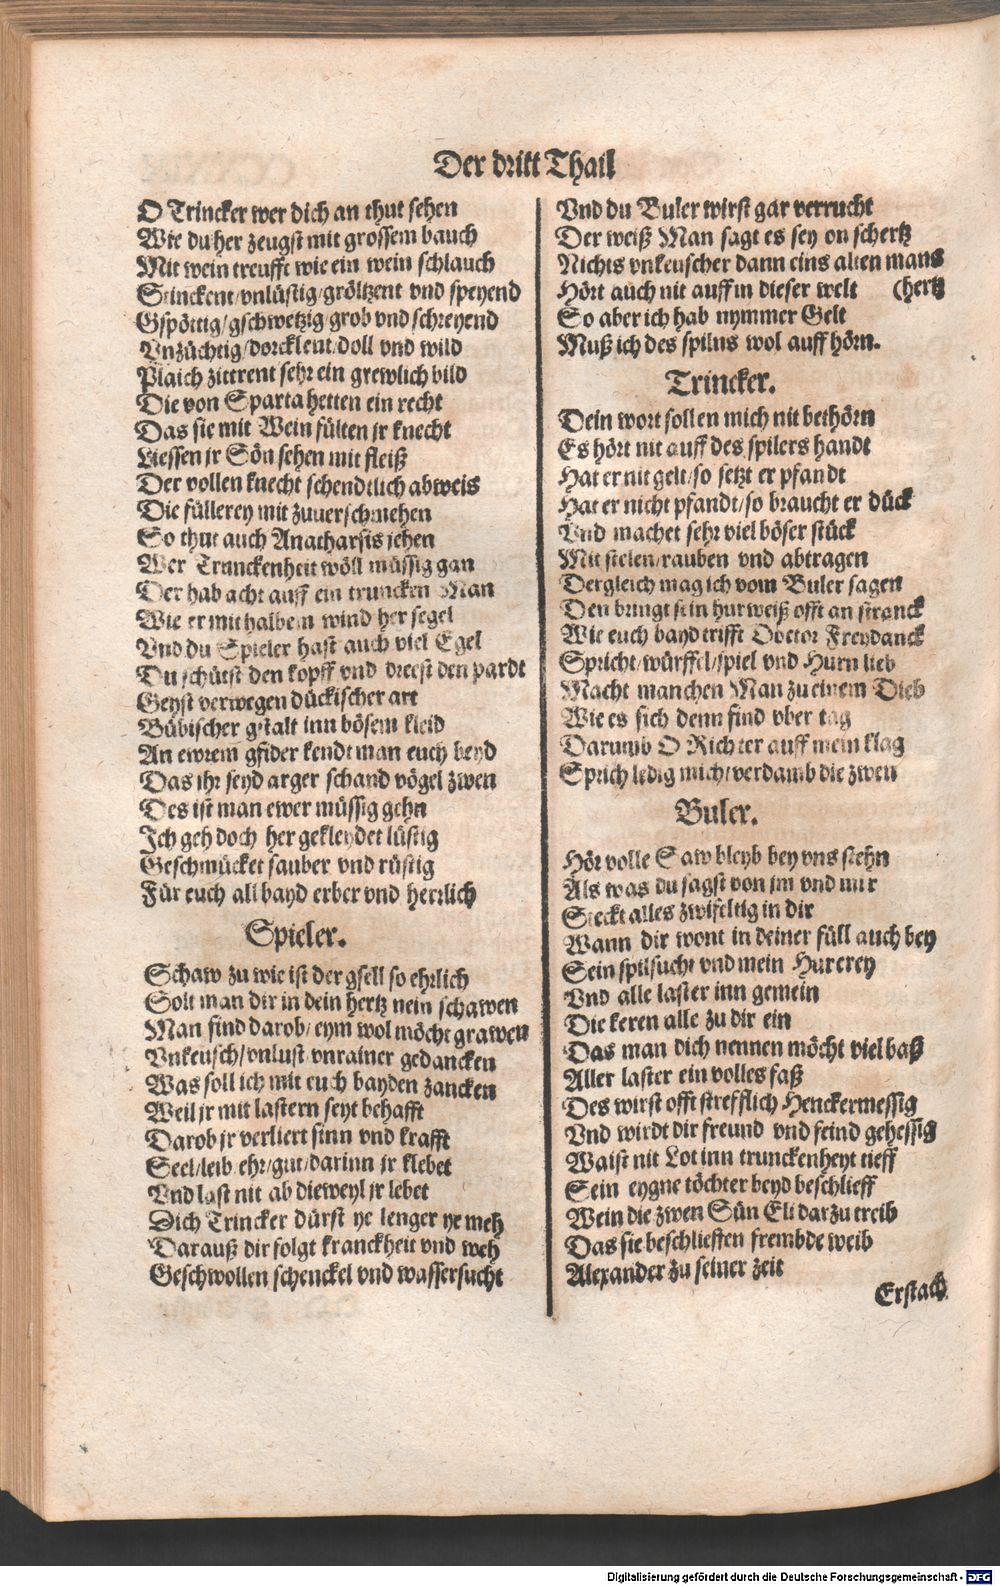 Der dritt Thail
O Trincker wer dich an thut sehen
Wie du her zeugst mit grossem bauch
Mit wein treufft wie ein wein schlauch
Stinckent/vnlüstig/gröltzent vnd speyend
Gspöttig/gschwetzig/grob vnd schreyend
Vnzüchtig/dorcklent/doll vnd wild
Plaich zittrent sehr ein grewlich bild
Die von Sparta hetten ein recht
Das sie mit Wein fülten jr knecht
Liessen jr Sön sehen mit fleiß
Der vollen knecht schendtlich abweis
Die füllerey mit zuuerschmehen
So thut auch Anatharsis jehen
Wer Trunckenheit wöll müssig gan
Der hab acht auff ein truncken Man
Wie er mit halbem wind her segel
Vnd du Spieler hast auch viel Egel
Du schütst den kopff vnd dreest den pardt
Geyst verwegen dückischer art
Bübischer gstalt inn bösem kleid
An ewrem gfider kendt man euch beyd
Das ihr seyd arger schand vögel zwen
Des ist man ewer müssig gehn
Ich geh doch her gekleydet lüstig
Geschmücket sauber vnd rüstig
Für euch all bayd erber vnd herrlich
Spieler.
Schaw zu wie ist der gsell so ehrlich
Solt man dir in dein hertz nein schawen
Man find darob/eym wol möcht grawen
Vnkeusch/vnlust/vnrainer gedancken
Was soll ich mit euch bayden zancken
Weil jr mit lastern seyt behafft
Darob jr verliert sinn vnd krafft
Seel/leib/ehr/gut/darinn jr klebet
Vnd last nit ab dieweyl jr lebet
Dich Trincker dürst ye lenger ye meh
Darauß dir folgt kranckheit vnd weh
Geschwollen schenckel vnd wassersucht
Vnd du Buler wirst gar verrucht
Der weiß Man sagt es sey on schertz
Nichts vnkeuscher dann eins alten mans
Hört auch nit auff in dieser welt (hertz
So aber ich hab nymmer Gelt
Muß ich des spilns wol auff hörn.
Trincker.
Dein wort sollen mich nit bethörn
Es hört nit auff des spilers handt
Hat er nit gelt/so setzt er pfandt
Hat er nicht pfandt/so braucht er dück
Vnd machet sehr viel böser stück
Mit stelen/rauben vnd abtragen
Dergleich mag ich vom Buler sagen
Den bringt sein hurweiß offt an stranck
Wie euch bayd trifft Doctor Freydanck
Spricht/würffel/spiel vnd Hurn lieb
Macht manchen Man zu einem Dieb
Wie es sich denn find vber tag
Darumb O Richter auff mein klag
Sprich ledig mich/verdamb die zwen
Buler.
Hör volle Saw bleyb bey vns stehn
Als was du sagst von jm vnd mir
Steckt alles zwifeltig in dir
Wann dir wont in deiner füll auch bey
Sein spilsucht vnd mein Hurerey
Vnd alle laster inn gemein
Die keren alle zu dir ein
Das man dich nennen möcht viel baß
Aller laster ein volles faß
Des wirst offt strefflich Henckermessig
Vnd wirdt dir freund vnd feind gehessig
Waist nit Lot inn trunckenheyt tieff
Sein eygne töchter beyd beschlieff
Wein die zwen Sün Eli darzu treib
Das sie beschlieffen frembde weib
Alexander zu seiner zeit
Erstach
Digitalisierung gefördert durch die Deutsche Forschungsgemeinschaft - DFG